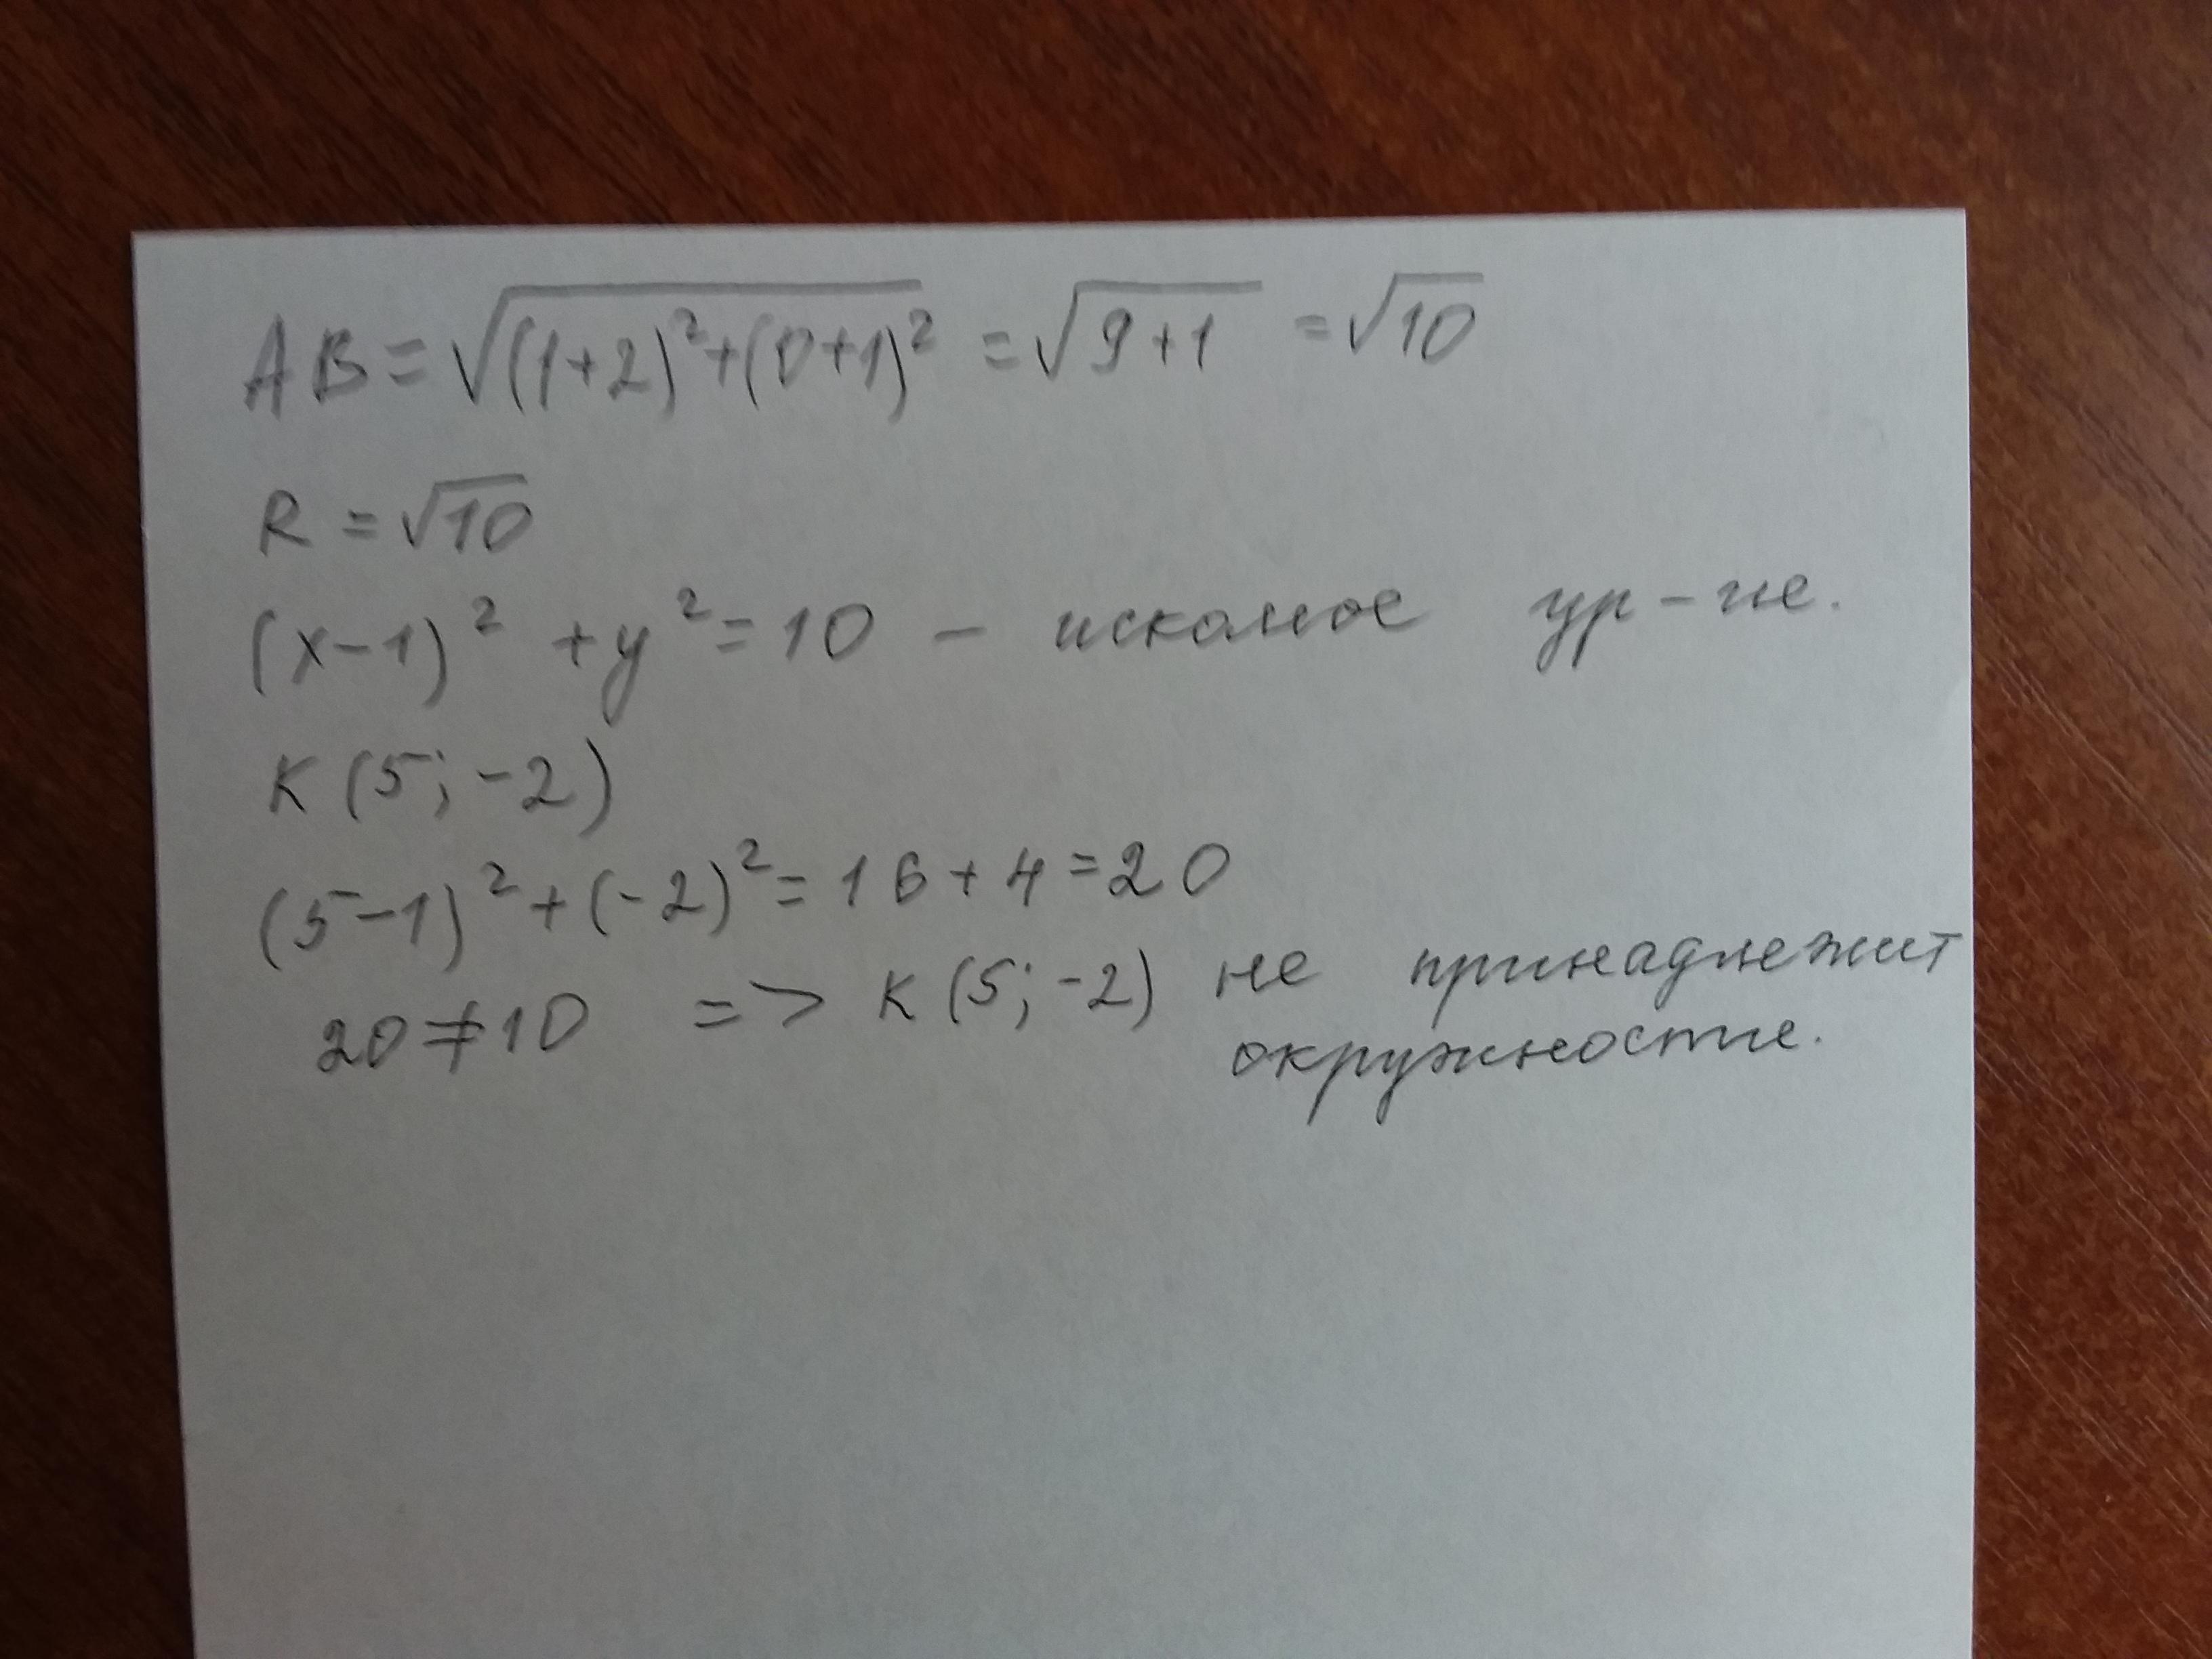 AB = √((1+2)²+(0+1)²) = √(9+1) = √10
R = √10
(x-1)² + y² = 10 – искомое ур-ие.
K (5; -2)
(5-1)² + (-2)² = 16 + 4 = 20
20 ≠ 10 => K (5; -2) не принадлежит
окружности.